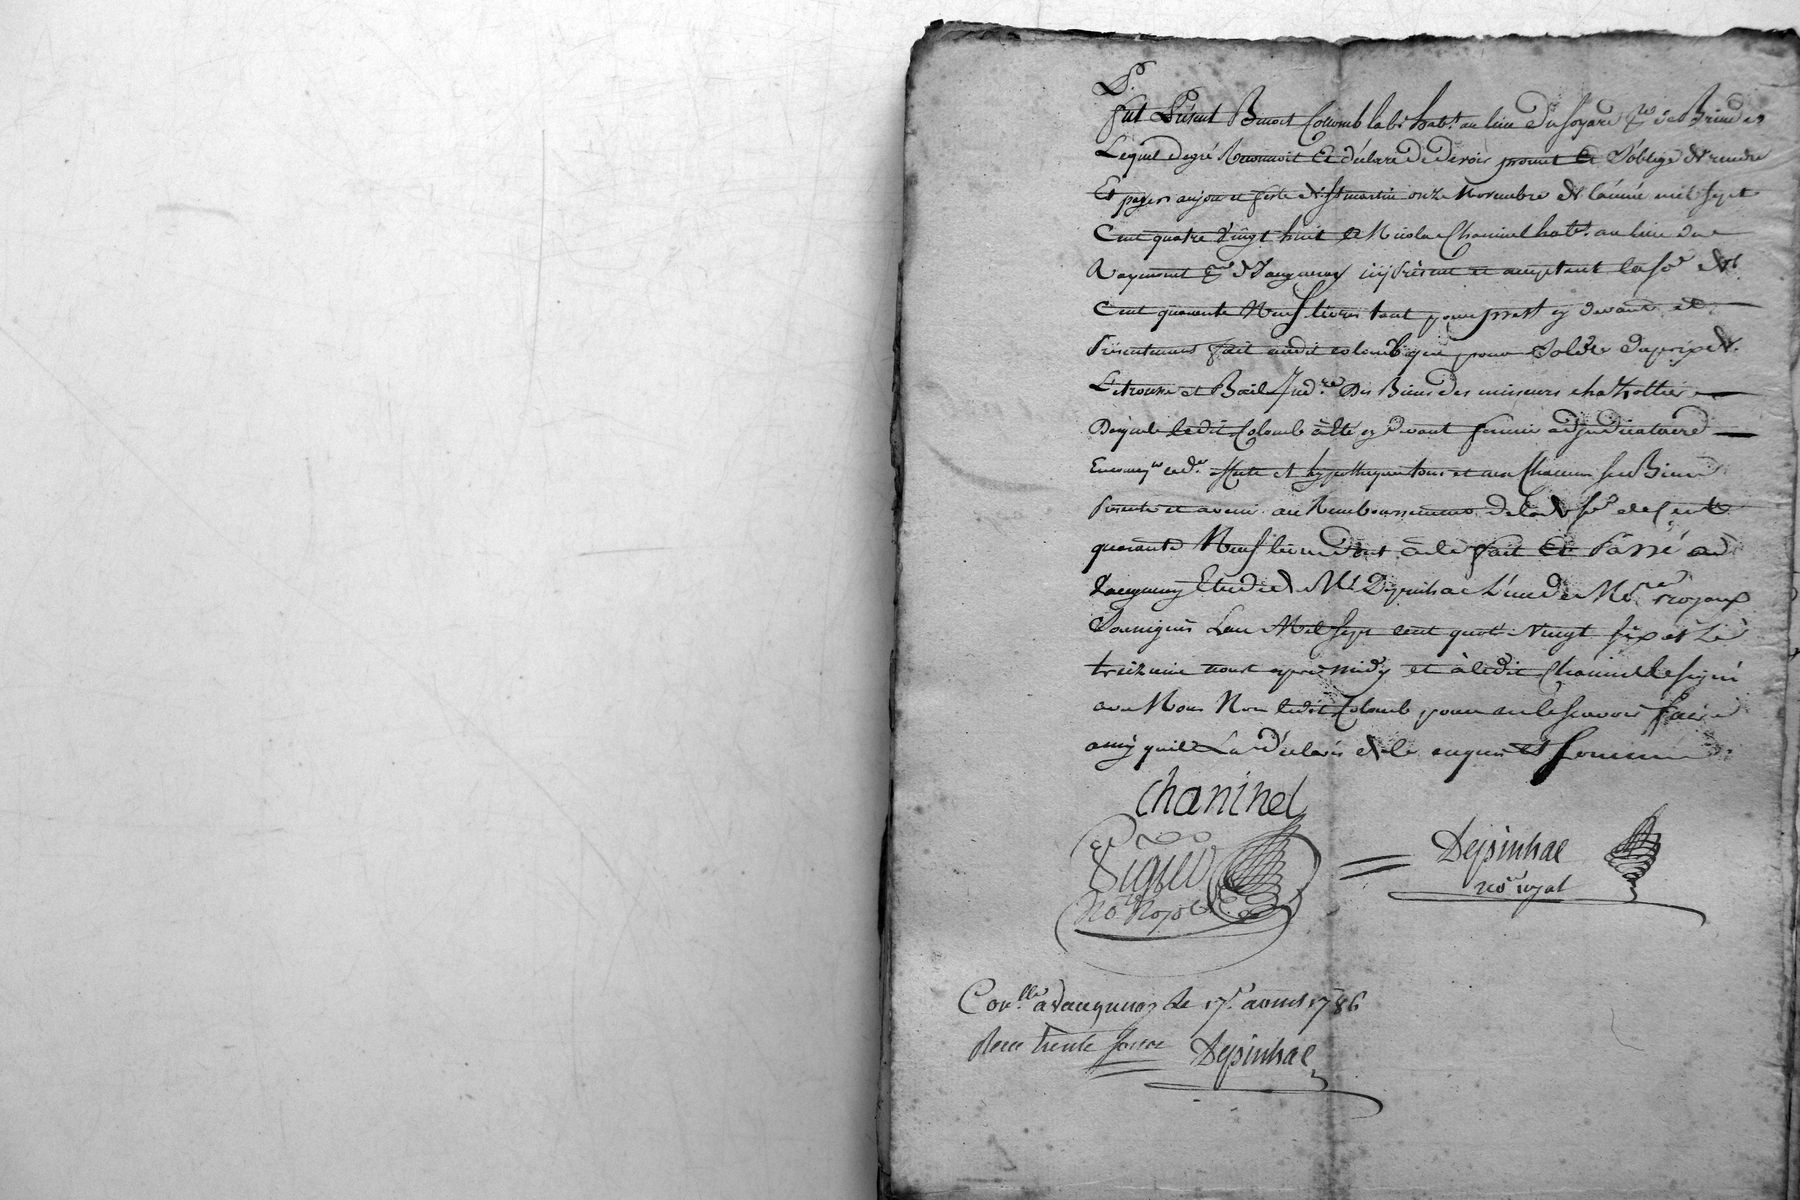 D.
fut Présent Benoit Colomb lab.r habt. au lieu du foyard p.sse de Brindes
Lequel degré Reconnoit Et declare de devoir promet Et S'oblige de rendre
Et payer au jour et feste de st martin onze Novembre de l'année mil sept
Cent quatre vingt huit a Nicolas Chaninel habt. au lieu de
Raymont p.sse de Vaugneray icy present et acceptant la so.e de
Cent quarante Neuf livres tant pour prest cy devant et
Presentement fait audit colomb que pour Solde du prix de
L'etrousse et Bail Jud.re Des Biens des mineurs chatrottier
Desquels ledit Colomb à été cy devant fermier adjudicataire
affecte et hypotheque tous et un Chacun ses Biens
presents et avenir au Remboursement de lad. so.e de Cent
quarante Neuf livres dont acte fait Et Passé a
Vaugneray Etude de M.e Depinhac L'un des No.res royaux
Soussignés L'an Mil sept cent quat.e Vingt six et Le
treizieme aoust apres midy et à ledit Chaninel signé
avec Nous Non ledit Colomb pour ne le scavoir faire
ainsy quil La declaré de le enquis et sommé
chaninel
No.re Royal
Depinhac
no.re royal
Con.llé a Vaugneray le 17.e aoust 1786
Reçu trente sous Depinhac